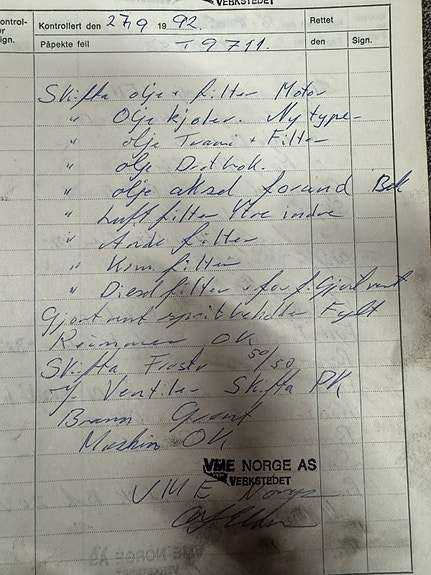 VERKSTEDET
Kontrol-
ler
sign.
Kontrollert den 27/9 19 92.
Rettet
Påpekte feil
T 9711.
den
Sign.
Skifta olje + filter Motor
" Olje kjøler. Ny type-
" olje Trami + Filter
" olje Drotbok.
" olje aksel forand Bak
" Luftfilter Ytre indre
" Ande filter
" Kim filter
" Diesel filter + for f.
Gjort rent sprit beholder Fylt
Reimmer OK
Skifta Frostv 50/50
Ventiler Skifta PK
Brann
Maskin OK
VME NORGE AS
VERKSTEDET
VME Norge
VME NORGE AS
VERKSTEDET